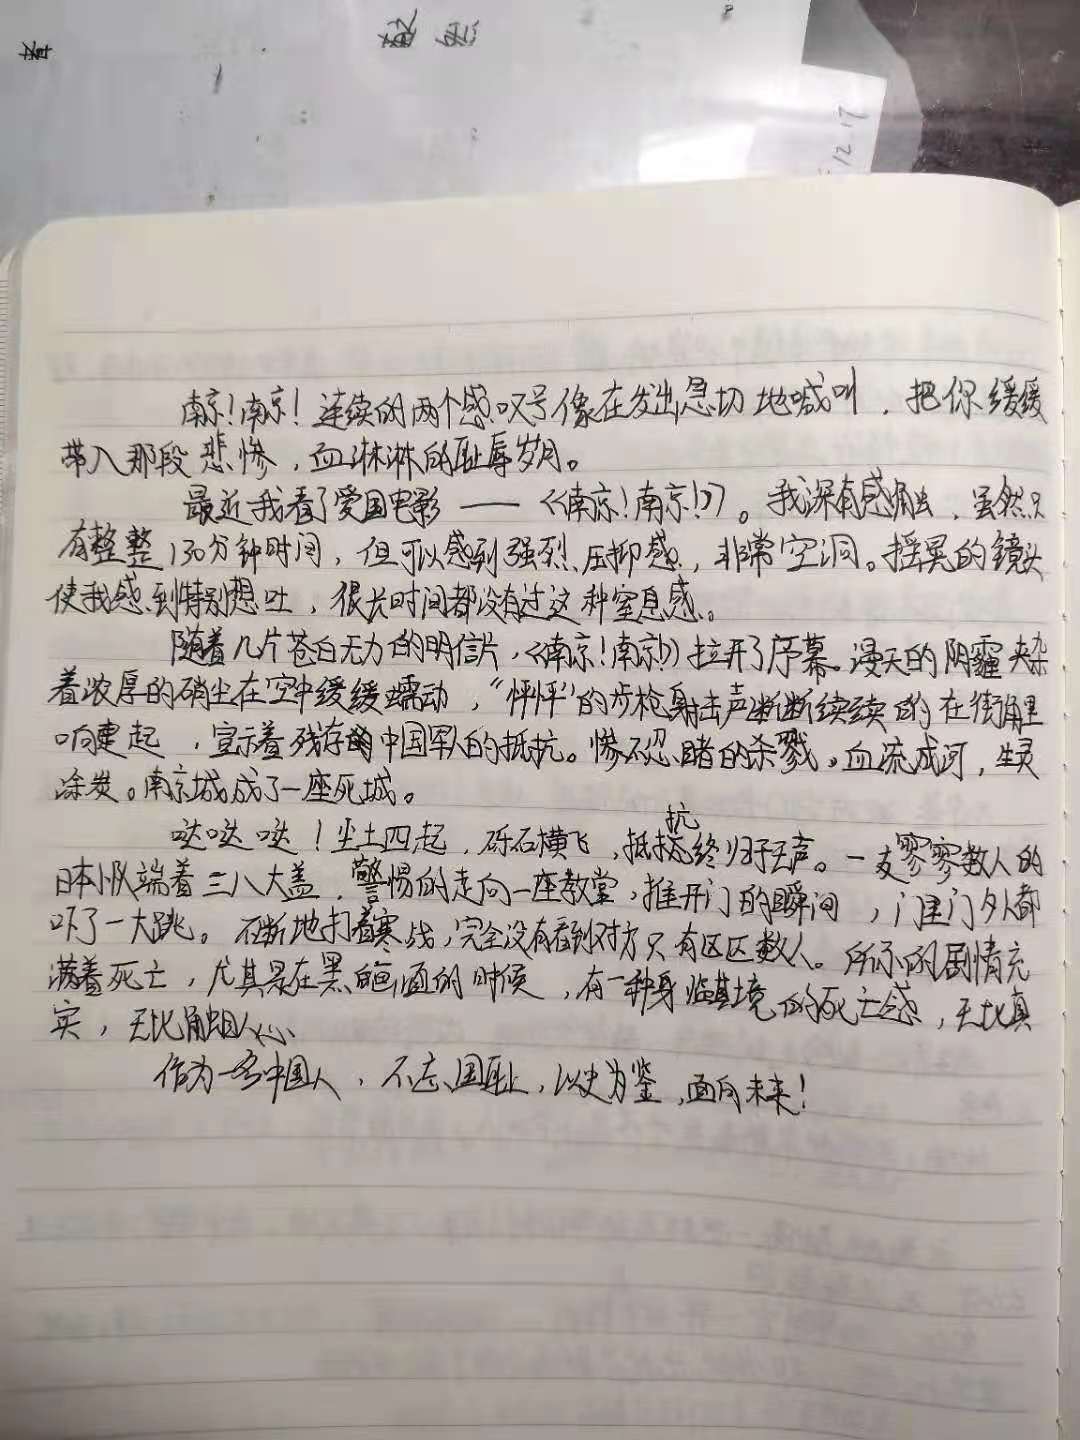 南京！南京！连续的两个感叹号像在发出急切地喊叫，把你缓缓
带入那段悲惨，血淋淋的耻辱岁月。
最近我看了爱国电影——《南京！南京！》。我深有感触，虽然只
有整整130分钟时间，但可以感到强烈压抑感，非常空洞。摇晃的镜头
使我感到特别想吐，很长时间都没有过这种窒息感。
随着几片苍白无力的明信片，《南京！南京！》拉开了序幕。漫天的阴霾夹杂
着浓厚的硝尘在空中缓缓蠕动，“怦怦”的步枪射击声断断续续的在街角里
响起，宣示着残存的中国军人的抵抗。惨不忍睹的杀戮。血流成河，生灵
涂炭。南京城成了一座死城。
哒哒哒！尘土四起，砾石横飞，抵抗终归于无声。一支寥寥数人的
日本小队端着三八大盖，警惕的走向一座教堂，推开门的瞬间，门里门外都
吓了一大跳。不断地打着寒战，完全没有看到对方只有区区数人。所示的剧情充
满着死亡，尤其是在黑白画面的时候，有一种身临其境的死亡感，无比真
实，无比触目人心
作为一名中国人，不忘国耻，以史为鉴，面向未来！
12.17